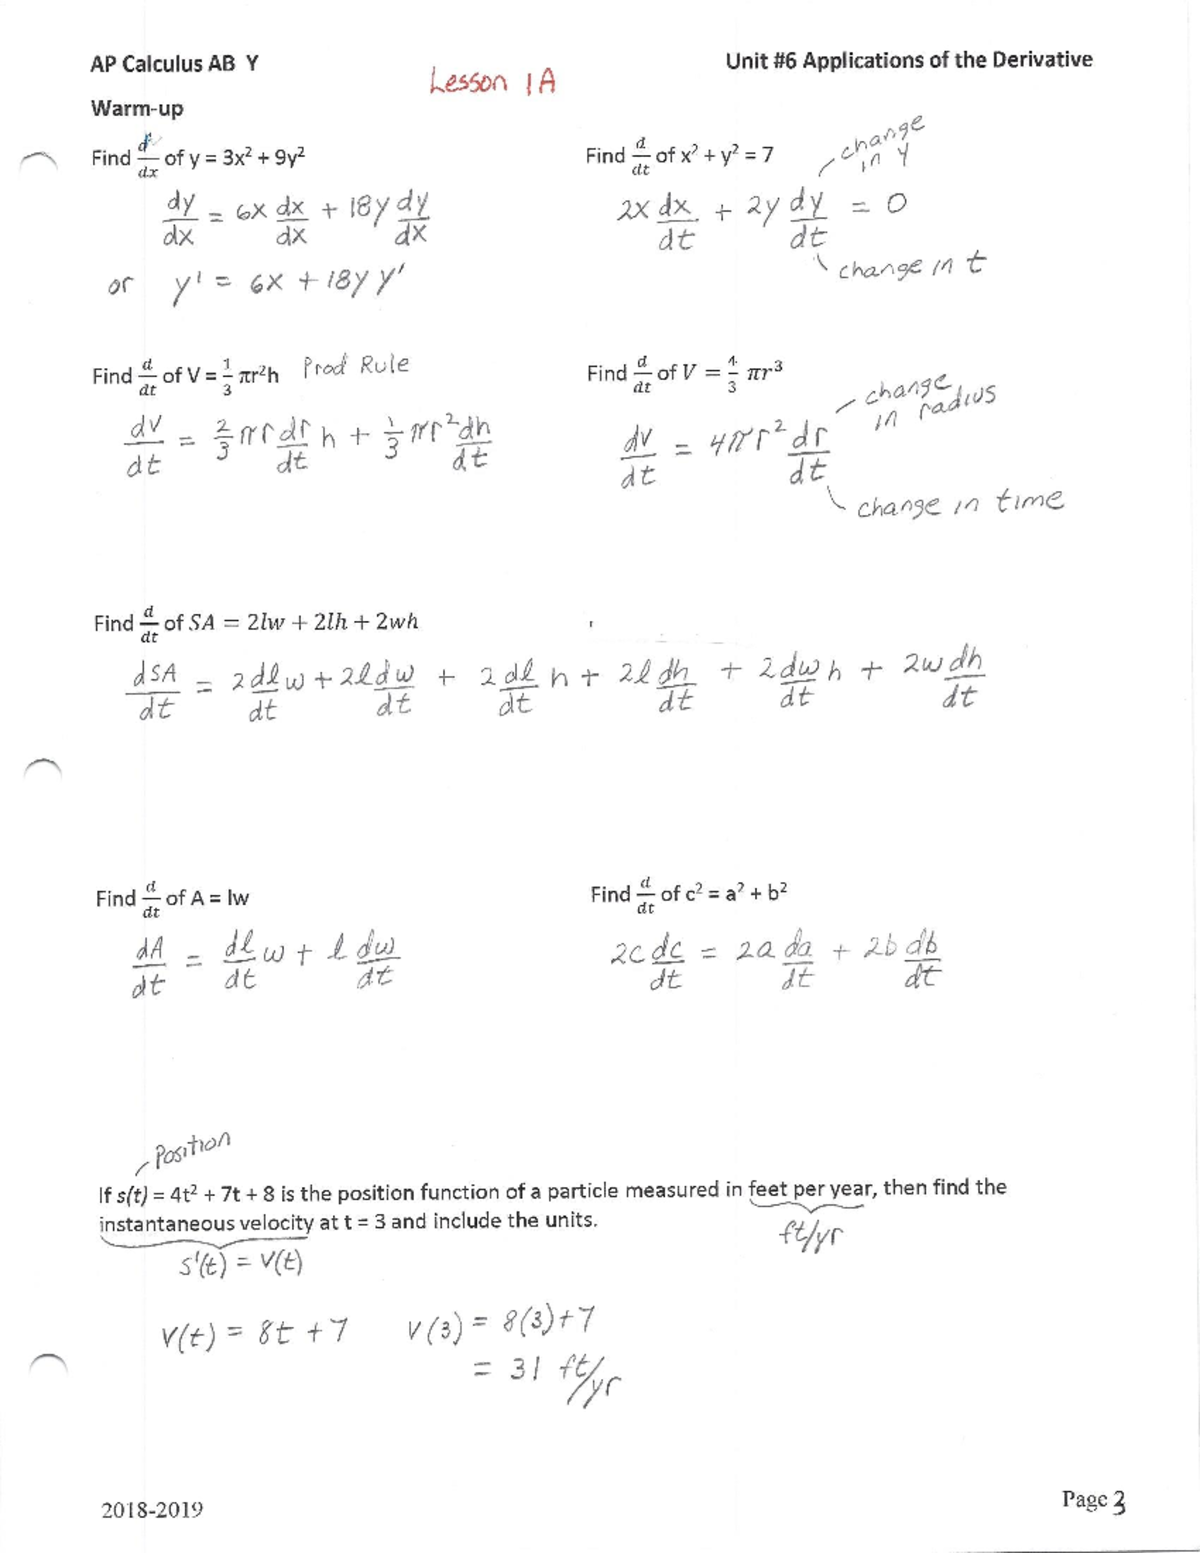 AP Calculus AB Y
Unit #6 Applications of the Derivative
Lesson 1A
Warm-up
Find d/dx of y = 3x² + 9y²
dy/dx = 6x dx/dx + 18y dy/dx
or y' = 6x + 18y y'
Find d/dt of x² + y² = 7
change in y
2x dx/dt + 2y dy/dt = 0
change in t
Find d/dt of V = 1/3 πr²h Prod Rule
dV/dt = 2/3 πr dr/dt h + 1/3 πr² dh/dt
Find d/dt of V = 4/3 πr³
change
in radius
dV/dt = 4πr² dr/dt
change in time
Find d/dt of SA = 2lw + 2lh + 2wh
dSA/dt = 2 dl/dt w + 2l dw/dt + 2 dl/dt h + 2l dh/dt + 2 dw/dt h + 2w dh/dt
Find d/dt of A = lw
dA/dt = dl/dt w + l dw/dt
Find d/dt of c² = a² + b²
2c dc/dt = 2a da/dt + 2b db/dt
Position
If s(t) = 4t² + 7t + 8 is the position function of a particle measured in feet per year, then find the
instantaneous velocity at t = 3 and include the units.
ft/yr
s'(t) = v(t)
v(t) = 8t + 7 v(3) = 8(3)+7
= 31 ft/yr
2018-2019
Page 3